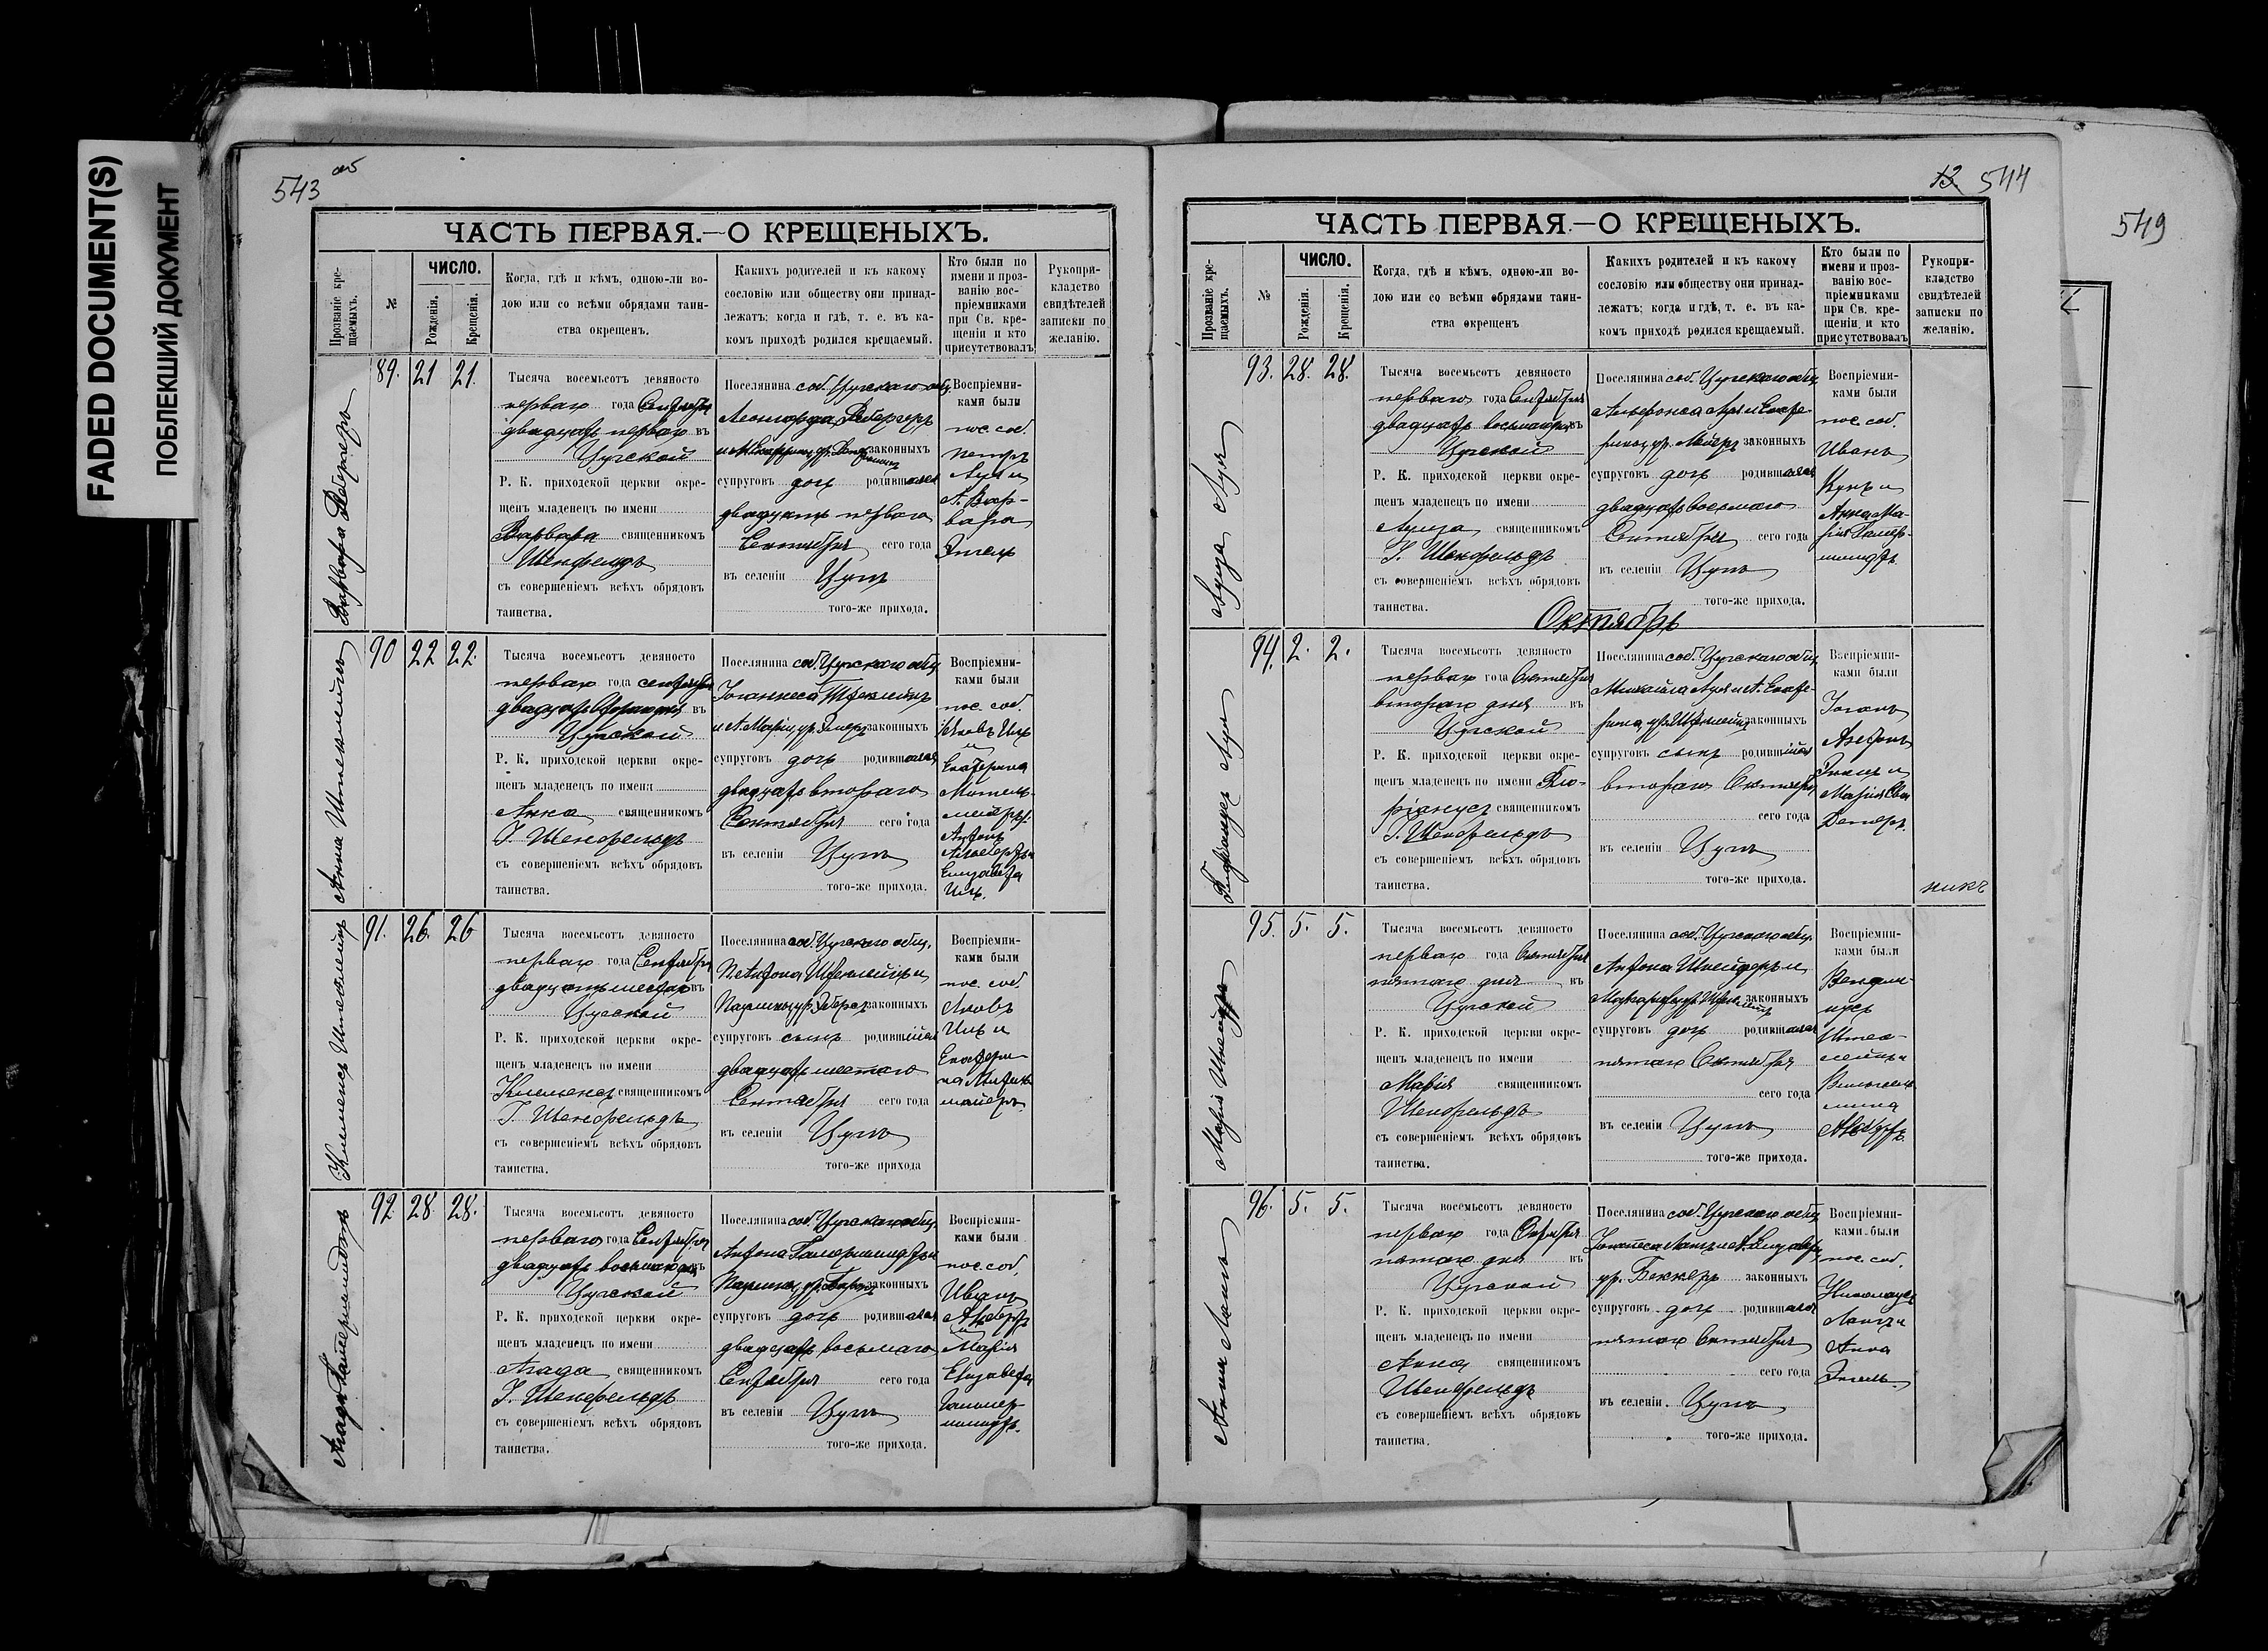 FADED DOCUMENT(S)
ПОБЛЕКШИЙ ДОКУМЕНТ
543 об
ЧАСТЬ ПЕРВАЯ.—О КРЕЩЕНЫХЪ.
Прозваніе кре-
щаемыхъ.
№
ЧИСЛО.
Рожденія.
Крещенія.
Когда, гдѣ и кѣмъ, одною-ли во-
дою или со всѣми обрядами таин-
ства окрещенъ.
Какихъ родителей и къ какому
сословію или обществу они принад-
лежатъ; когда и гдѣ, т. е. въ ка-
комъ приходѣ родился крещаемый.
Кто были по
имени и проз-
ванію вос-
пріемниками
при Св. кре-
щеніи и кто
присутствовалъ
Рукопри-
кладство
свидѣтелей
записки по
желанію.
Варвара
89. 21 21.
Тысяча восемьсотъ девяносто
перваго года Сентября
двадцать перваго въ
Цугской
Р. К. приходской церкви окре-
щенъ младенецъ по имени
Варвара священникомъ
Шенфельдъ
съ совершеніемъ всѣхъ обрядовъ
таинства.
Поселянина соб. Цугскаго общ.
Леонарда
законныхъ
супруговъ дочь родившаяся
двадцать перваго
Сентября сего года
въ селеніи Цугъ
того-же прихода.
Воспріемни-
ками были
пос. соб.
Петръ
Луи
А. Вар-
вара
Энгель
Анна Штеклейнъ
90 22 22.
Тысяча восемьсотъ девяносто
перваго года сентября
въ
Цугской
Р. К. приходской церкви окре-
щенъ младенецъ по имени
Анна священникомъ
І. Шенфельдъ
съ совершеніемъ всѣхъ обрядовъ
таинства.
Поселянина соб. Цугскаго общ.
Іоаннеса Штеклейнъ
и А. Маріи, ур. законныхъ
супруговъ дочь родившаяся
двадцать втораго
Сентября сего года
въ селеніи Цугъ
того-же прихода.
Воспріемни-
ками были
пос. соб.
Яковъ
и
Екатерина
Антонъ
Елизавета
Клеменсъ Штеклейнъ
91. 26. 26
Тысяча восемьсотъ девяносто
перваго года Сентября
двадцать шестаго въ
Цугской
Р. К. приходской церкви окре-
щенъ младенецъ по имени
Клеменсъ священникомъ
І. Шенфельдъ
съ совершеніемъ всѣхъ обрядовъ
таинства.
Поселянина соб. Цугскаго общ.
Антона Штеклейнъ и
Паулины, ур. законныхъ
супруговъ сынъ родившійся
двадцать шестаго
Сентября сего года
въ селеніи Цугъ
того-же прихода
Воспріемни-
ками были
пос. соб.
Яковъ
и
Екатери-
на
92. 28. 28.
Тысяча восемьсотъ девяносто
перваго года Сентября
двадцать восьмаго дня въ
Цугской
Р. К. приходской церкви окре-
щенъ младенецъ по имени
Агада священникомъ
І. Шенфельдъ
съ совершеніемъ всѣхъ обрядовъ
таинства.
Поселянина соб. Цугскаго общ.
Антона
Паулины, ур. законныхъ
супруговъ дочь родившаяся
двадцать восьмаго
Сентября сего года
въ селеніи Цугъ
того-же прихода.
Воспріемни-
ками были
пос. соб.
Иванъ
и
Марія
Елизавета
13. 544
549
ЧАСТЬ ПЕРВАЯ.—О КРЕЩЕНЫХЪ.
Прозваніе кре-
щаемыхъ.
№
ЧИСЛО.
Рожденія.
Крещенія.
Когда, гдѣ и кѣмъ, одною-ли во-
дою или со всѣми обрядами таин-
ства окрещенъ
Какихъ родителей и къ какому
сословію или обществу они принад-
лежатъ; когда и гдѣ, т. е. въ ка-
комъ приходѣ родился крещаемый.
Кто были по
имени и проз-
ванію вос-
пріемниками
при Св. кре-
щеніи и кто
присутствовалъ
Рукопри-
кладство
свидѣтелей
записки по
желанію.
Луиза Луи
93. 28. 28.
Тысяча восемьсотъ девяносто
перваго года Сентября
двадцать восьмаго въ
Цугской
Р. К. приходской церкви окре-
щенъ младенецъ по имени
Луиза священникомъ
І. Шенфельдъ
съ совершеніемъ всѣхъ обрядовъ
таинства.
Поселянина соб. Цугскаго общ.
Альфонса Луи и Екате-
рины, ур. Мейеръ законныхъ
супруговъ дочь родившаяся
двадцать восьмаго
Сентября сего года
въ селеніи Цугъ
того-же прихода.
Воспріемни-
ками были
пос. соб.
Иванъ
Кунъ и
Анна Ма-
рія
Октябрь
94. 2. 2.
Тысяча восемьсотъ девяносто
перваго года Октября
втораго дня въ
Цугской
Р. К. приходской церкви окре-
щенъ младенецъ по имени Фло-
ріанусъ священникомъ
І. Шенфельдъ
съ совершеніемъ всѣхъ обрядовъ
таинства.
Поселянина соб. Цугскаго общ.
Михаила Луи и А. Екате-
рина, ур. законныхъ
супруговъ сынъ родившійся
втораго Октября
сего года
въ селеніи Цугъ
того-же прихода.
Воспріемни-
ками были
Іоганъ
и
Марія Ева
Марія Шнейдеръ
95. 5. 5.
Тысяча восемьсотъ девяносто
перваго года Октября
пятаго дня въ
Цугской
Р. К. приходской церкви окре-
щенъ младенецъ по имени
Марія священникомъ
Шенфельдъ
съ совершеніемъ всѣхъ обрядовъ
таинства.
Поселянина соб. Цугскаго общ.
Антона Шнейдеръ и
законныхъ
супруговъ дочь родившаяся
пятаго Октября
сего года
въ селеніи Цугъ
того-же прихода.
Воспріемни-
ками были
Вендели-
нусъ
Штек-
лейнъ и
Вильгель-
мина
Анна Лангъ
96. 5. 5.
Тысяча восемьсотъ девяносто
перваго года Октября
пятаго дня въ
Цугской
Р. К. приходской церкви окре-
щенъ младенецъ по имени
Анна священникомъ
Шенфельдъ
съ совершеніемъ всѣхъ обрядовъ
таинства.
Поселянина соб. Цугскаго общ.
Іоганеса Лангъ и А. Елизаветы,
ур. Беккеръ законныхъ
супруговъ дочь родившаяся
пятаго Октября
сего года
въ селеніи Цугъ
того-же прихода.
Воспріемни-
ками были
пос. соб.
Николаусъ
Лангъ и
Анна
Энгель